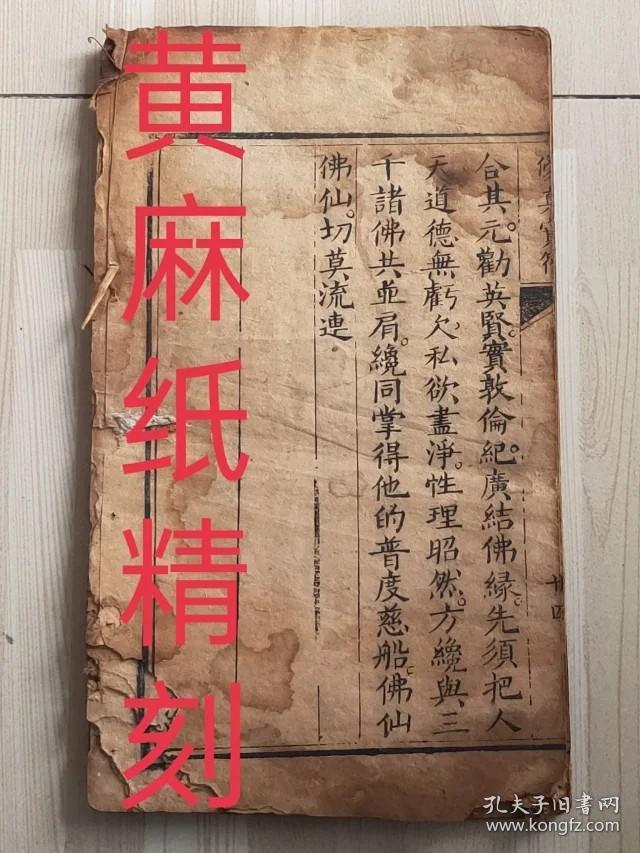 黄麻纸精刻
合其元。勸英賢。實敦倫紀。廣結佛緣。先須把人
天道德無虧欠。私欲盡淨。性理昭然。方纔與三
千諸佛共並肩。纔同掌得他的普度慈船。佛仙
佛仙。切莫流連。
廿四
孔夫子旧书网
www.kongfz.com